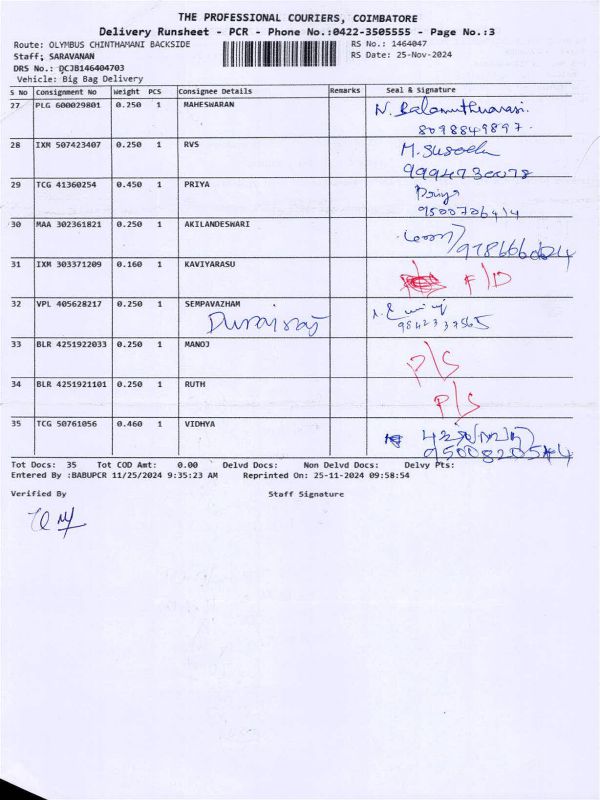 THE PROFESSIONAL COURIERS, COIMBATORE
Delivery Runsheet - PCR - Phone No.:0422-3505555 - Page No.:3
Route: OLYMBUS CHINTHAMANI BACKSIDE RS No.: 1464047
Staff: SARAVANAN RS Date: 25-Nov-2024
DRS No.: DCJB146404703
Vehicle: Big Bag Delivery
S No Consignment No Weight PCS Consignee Details Remarks Seal & Signature
27 PLG 600029801 0.250 1 MAHESWARAN N. Balamuthuvarasi.
8098849897.
28 IXM 507423407 0.250 1 RVS M. Suseela
9994730078
29 TCG 41360254 0.450 1 PRIYA Priya
9500706414
30 MAA 302361821 0.250 1 AKILANDESWARI
31 IXM 303371209 0.160 1 KAVIYARASU F/D
32 VPL 405628217 0.250 1 SEMPAVAZHAM
Durairaj 9842337565
33 BLR 4251922033 0.250 1 MANOJ P/S
34 BLR 4251921101 0.250 1 RUTH P/S
35 TCG 50761056 0.460 1 VIDHYA
Tot Docs: 35 Tot COD Amt: 0.00 Delvd Docs: Non Delvd Docs: Delvy Pts:
Entered By :BABUPCR 11/25/2024 9:35:23 AM Reprinted On: 25-11-2024 09:58:54
Verified By Staff Signature